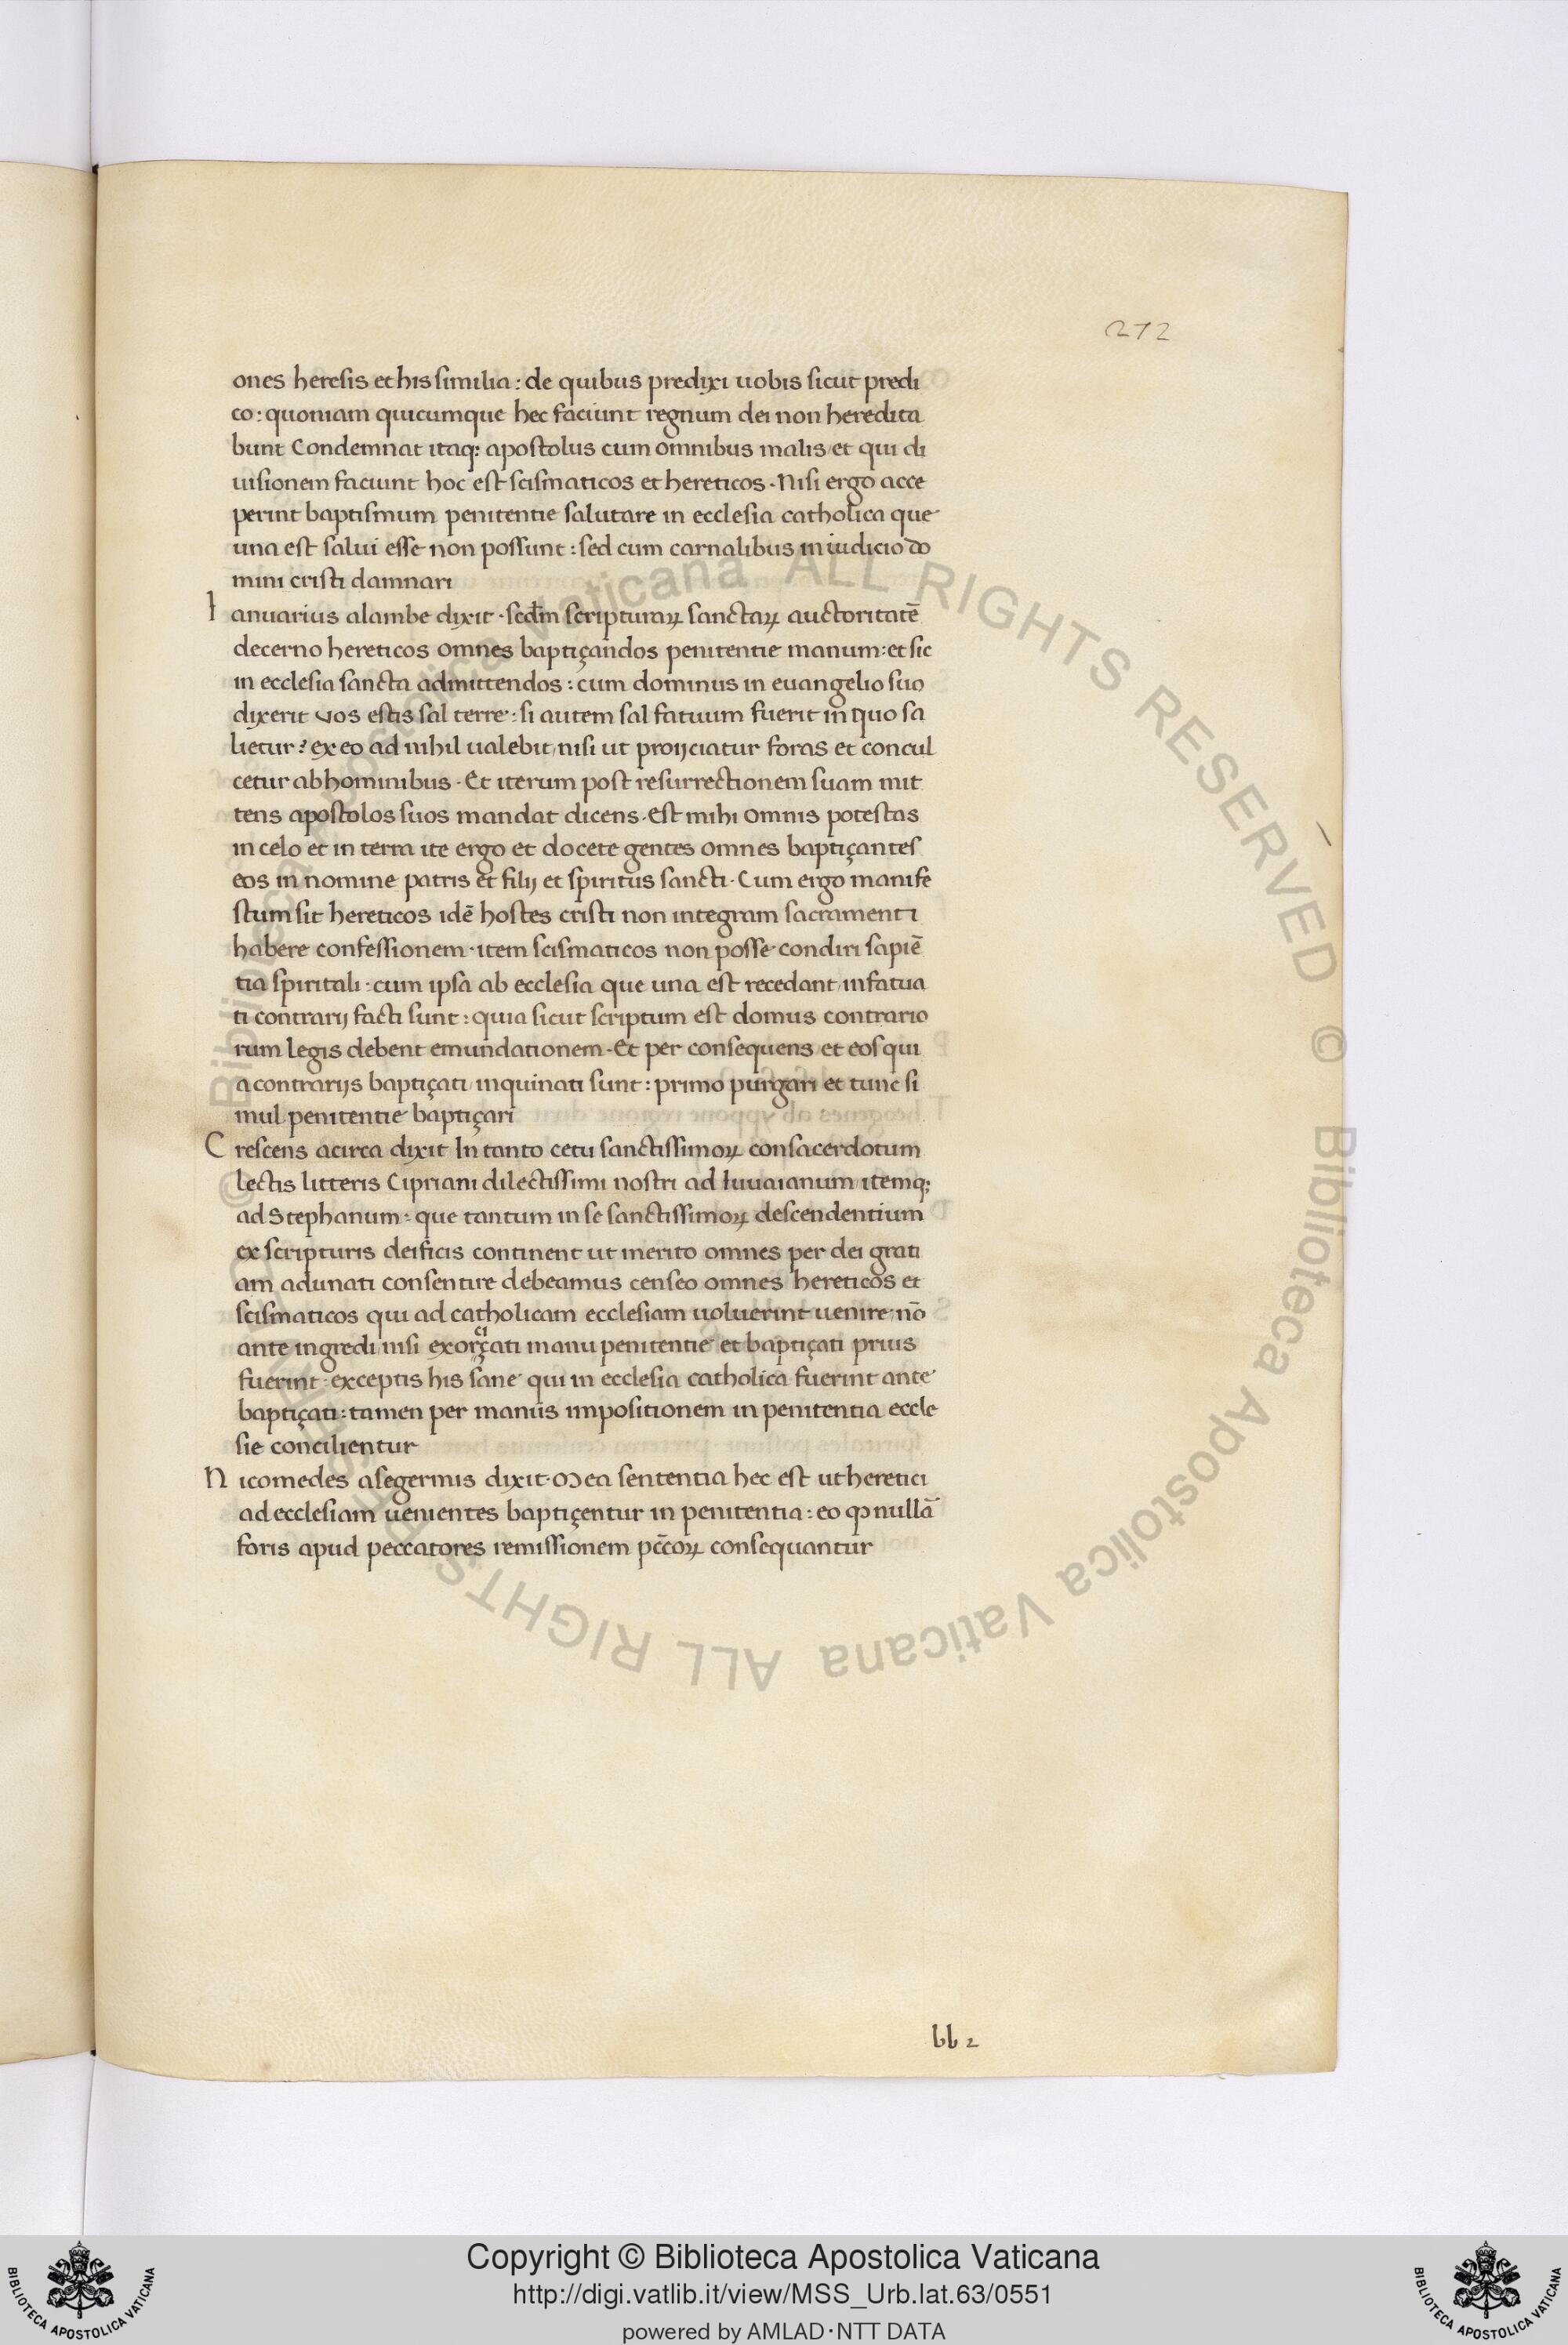 272
ones heresis et his similia : de quibus predixi uobis sicut predi
co : quoniam quicumque hec faciunt regnum dei non heredita
bunt Condemnat itaq; apostolus cum omnibus malis / et qui di
uisionem faciunt hoc est scismaticos et hereticos · Nisi ergo acce
perint baptismum penitentie salutare in ecclesia catholica que
una est salui esse non possunt : sed cum carnalibus in iudicio do
mini cristi damnari
Ianuarius alambe dixit · scdm̄ scripturaꝝ sanctaꝝ auctoritatē
decerno hereticos omnes baptiçandos penitentie manum : et sic
in ecclesia sancta admittendos : cum dominus in euangelio suo
dixerit vos estis sal terre : si autem sal fatuum fuerit in quo sa
lietur ? ex eo ad nihil ualebit / nisi ut proijciatur foras et concul
cetur ab hominibus · Et iterum post resurrectionem suam mit
tens apostolos suos mandat dicens · Est mihi omnis potestas
in celo et in terra ite ergo et docete gentes omnes baptiçantes
eos in nomine patris et filij et spiritus sancti · Cum ergo manife
stum sit hereticos idē hostes cristi non integram sacramenti
habere confessionem · item scismaticos non posse condiri sapiē
tia spiritali : cum ipsa ab ecclesia que una est recedant / infatua
ti contrarij facti sunt : quia sicut scriptum est domus contrario
rum legis debent emundationem · Et per consequens et eos qui
a contrarijs baptiçati / inquinati sunt : primo purgari et tunc si
mul penitentie baptiçari
Crescens acirca dixit In tanto cetu sanctissimoꝝ consacerdotum
lectis litteris Cipriani dilectissimi nostri ad Iuuaianum / itemq;
ad Stephanum : que tantum in se sanctissimoꝝ descendentium
ex scripturis deificis continent ut merito omnes per dei grati
am adunati consentire debeamus censeo omnes hereticos et
scismaticos qui ad catholicam ecclesiam uoluerint uenire / nō
ante ingredi / nisi exorçciati manu penitentie et baptiçati prius
fuerint : exceptis his sane qui in ecclesia catholica fuerint ante
baptiçati : tamen per manus impositionem in penitentia eccle
sie concilientur
Nicomedes a segermis dixit · Mea sententia hec est ut heretici
ad ecclesiam uenientes baptiçentur in penitentia : eo ꝙ nullā
foris apud peccatores remissionem pc̄coꝝ consequantur
bb 2
© Biblioteca Apostolica Vaticana ALL RIGHTS RESERVED
© Biblioteca Apostolica Vaticana ALL RIGHTS RESERVED
Copyright © Biblioteca Apostolica Vaticana
http://digi.vatlib.it/view/MSS_Urb.lat.63/0551
powered by AMLAD · NTT DATA
BIBLIOTECA APOSTOLICA VATICANA
BIBLIOTECA APOSTOLICA VATICANA